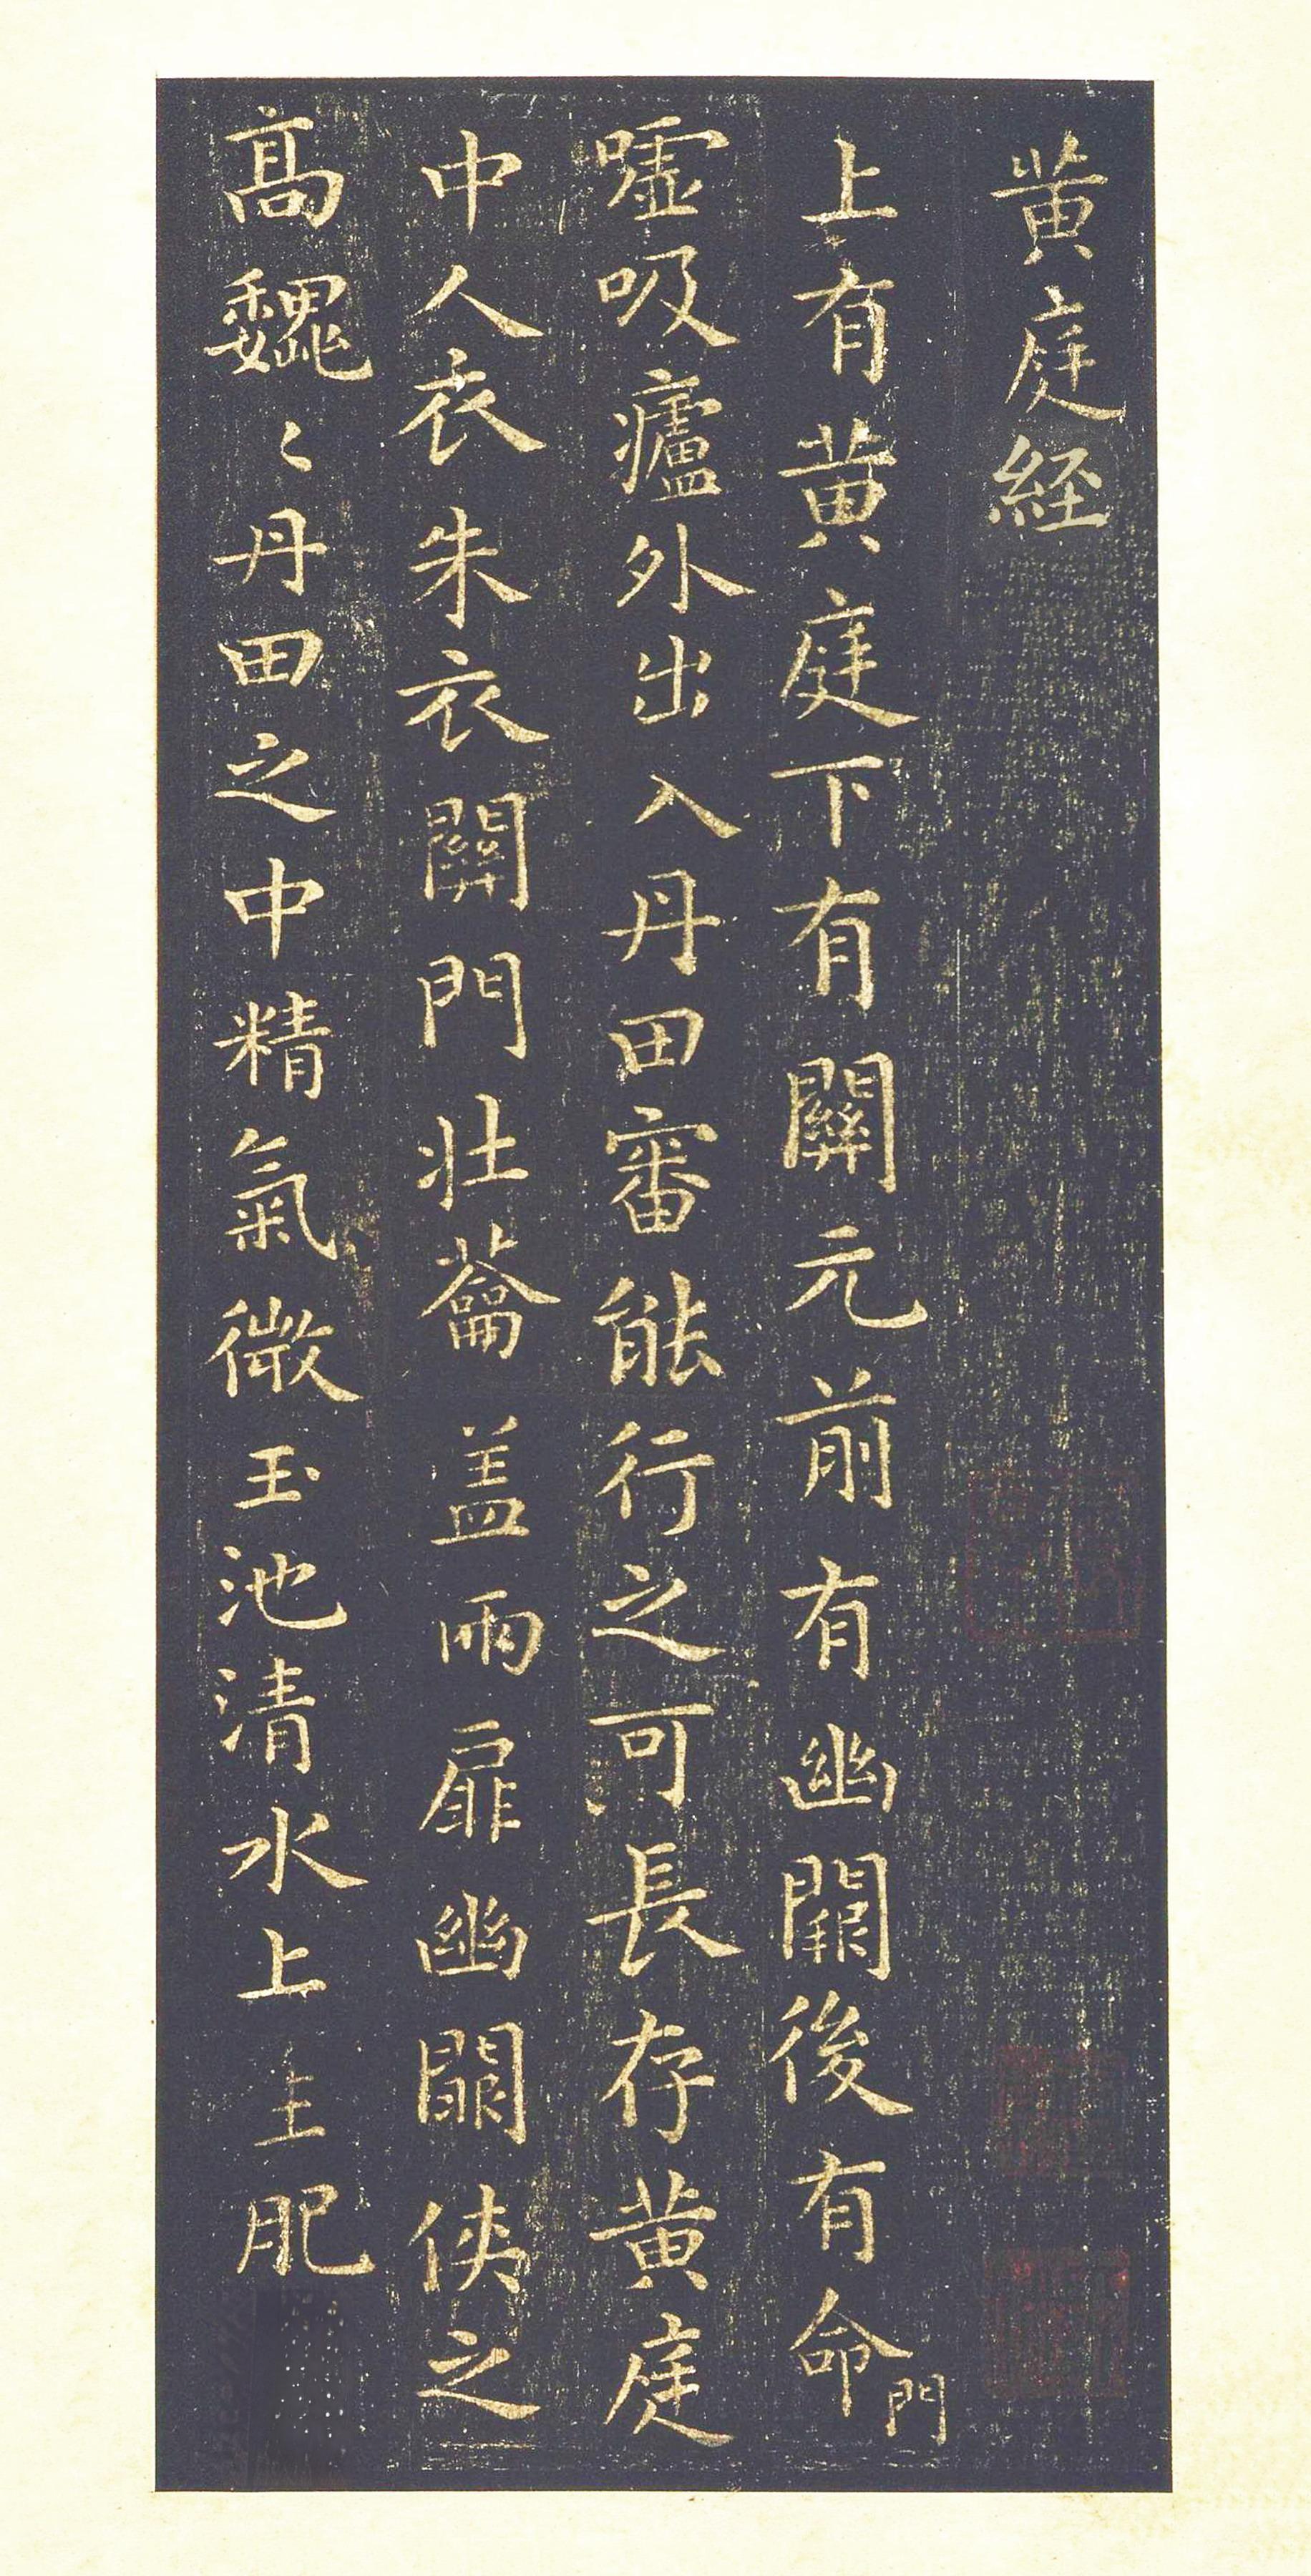 黄庭経
上有黄庭下有關元前有幽闕後有命門
嘘吸廬外出入丹田審能行之可長存黄庭
中人衣朱衣關門壯蘥盖兩扉幽闕俠之
髙巍〻丹田之中精氣微玉池清水上生肥